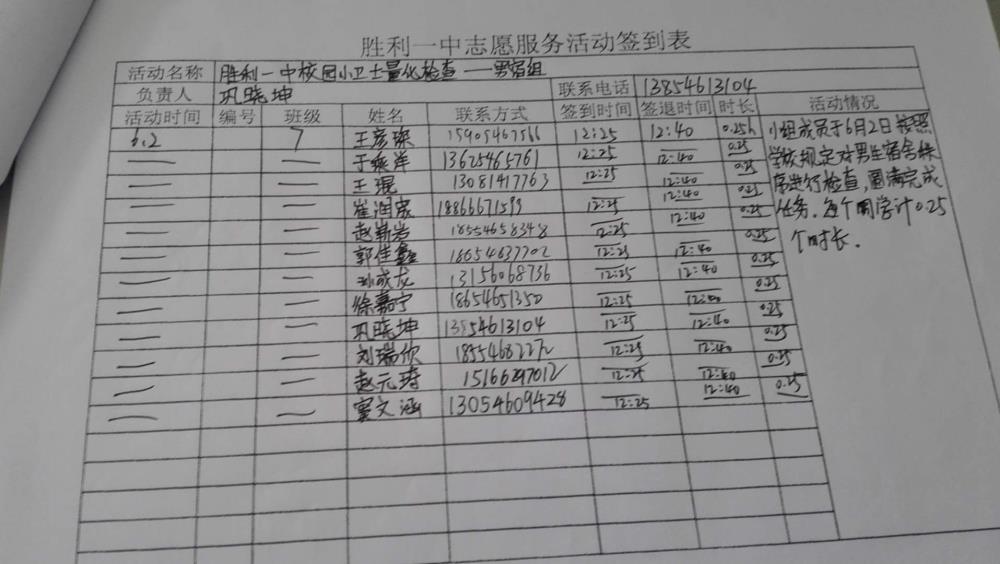 胜利一中志愿服务活动签到表
活动名称 胜利一中校园小卫士量化检查——男宿组
负责人 巩晓坤 联系电话 13854613104
活动时间 编号 班级 姓名 联系方式 签到时间 签退时间 时长 活动情况
6.2 7 王彦琛 15905467566 12:25 12:40 0.25h
于乘洋 13625465761 12:25 12:40 0.25
王琨 13081417763 12:25 12:40 0.25
崔润宸 18866671599 12:25 12:40 0.25
赵崭岩 18554658348 12:25 12:40 0.25
郭佳鑫 18654637702 12:25 12:40 0.25
孙成龙 13156068736 12:25 12:40 0.25
徐嘉宁 18654651350 12:25 12:40 0.25
巩晓坤 13854613104 12:25 12:40 0.25
刘瑞欣 12:25 12:40 0.25
赵元琦 15166297012 12:25 12:40 0.25
窦文涵 13054609428 12:25 12:40 0.25
小组成员于6月2日按照
学校规定对男生宿舍秩
序进行检查,圆满完成
任务。每个同学计0.25
个时长.